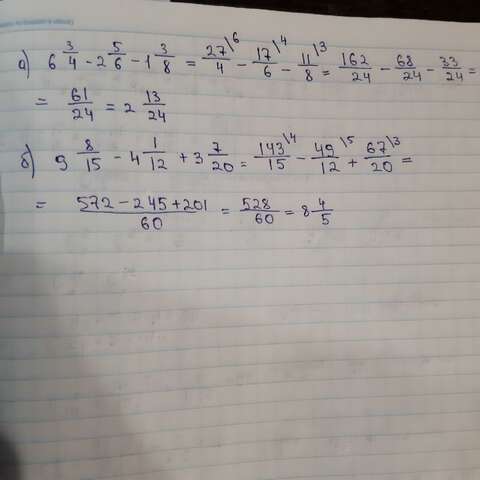 а) 6 3/4 - 2 5/6 - 1 3/8 = 27\6/4 - 17\4/6 - 11\3/8 = 162/24 - 68/24 - 33/24 =
= 61/24 = 2 13/24
б) 9 8/15 - 4 1/12 + 3 7/20 = 143\4/15 - 49\5/12 + 67\3/20 =
= 572 - 245 + 201/60 = 528/60 = 8 4/5